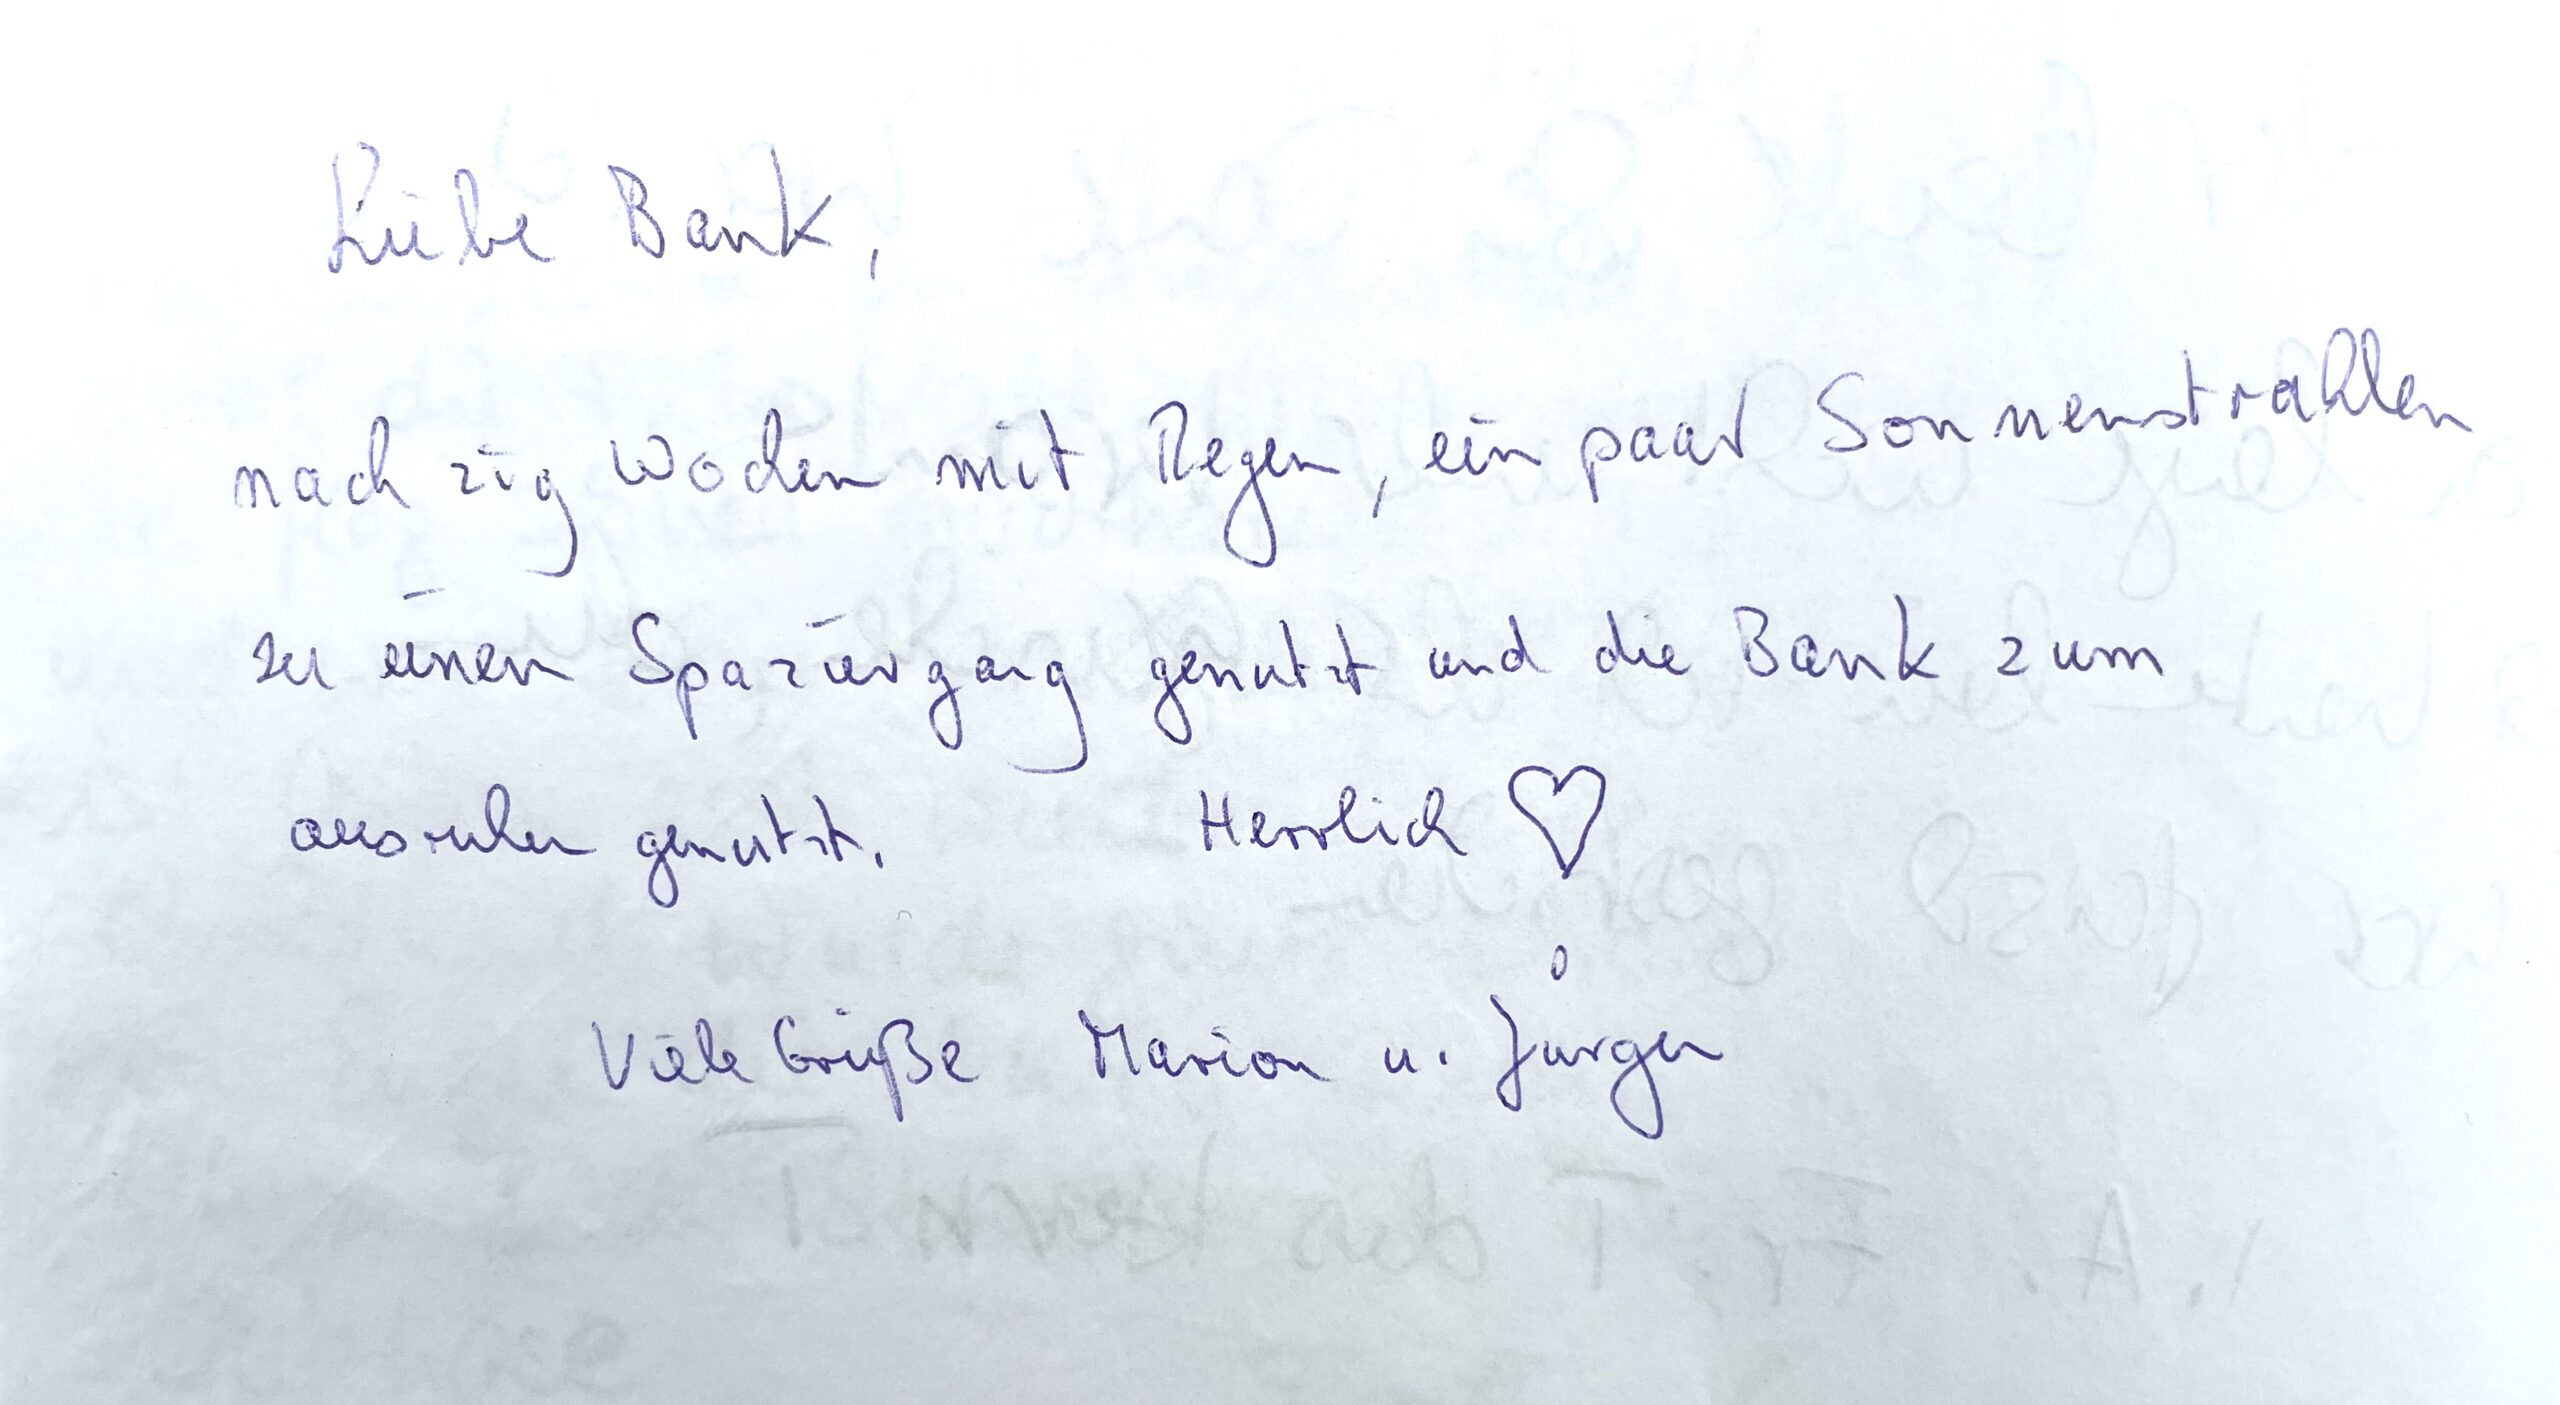 Liebe Bank,
nach zig Wochen mit Regen, ein paar Sonnenstrahlen
zu einen Spaziergang genutzt und die Bank zum
ausruhen genutzt. Herrlich ♡
Viele Grüße Marion u. Jürgen